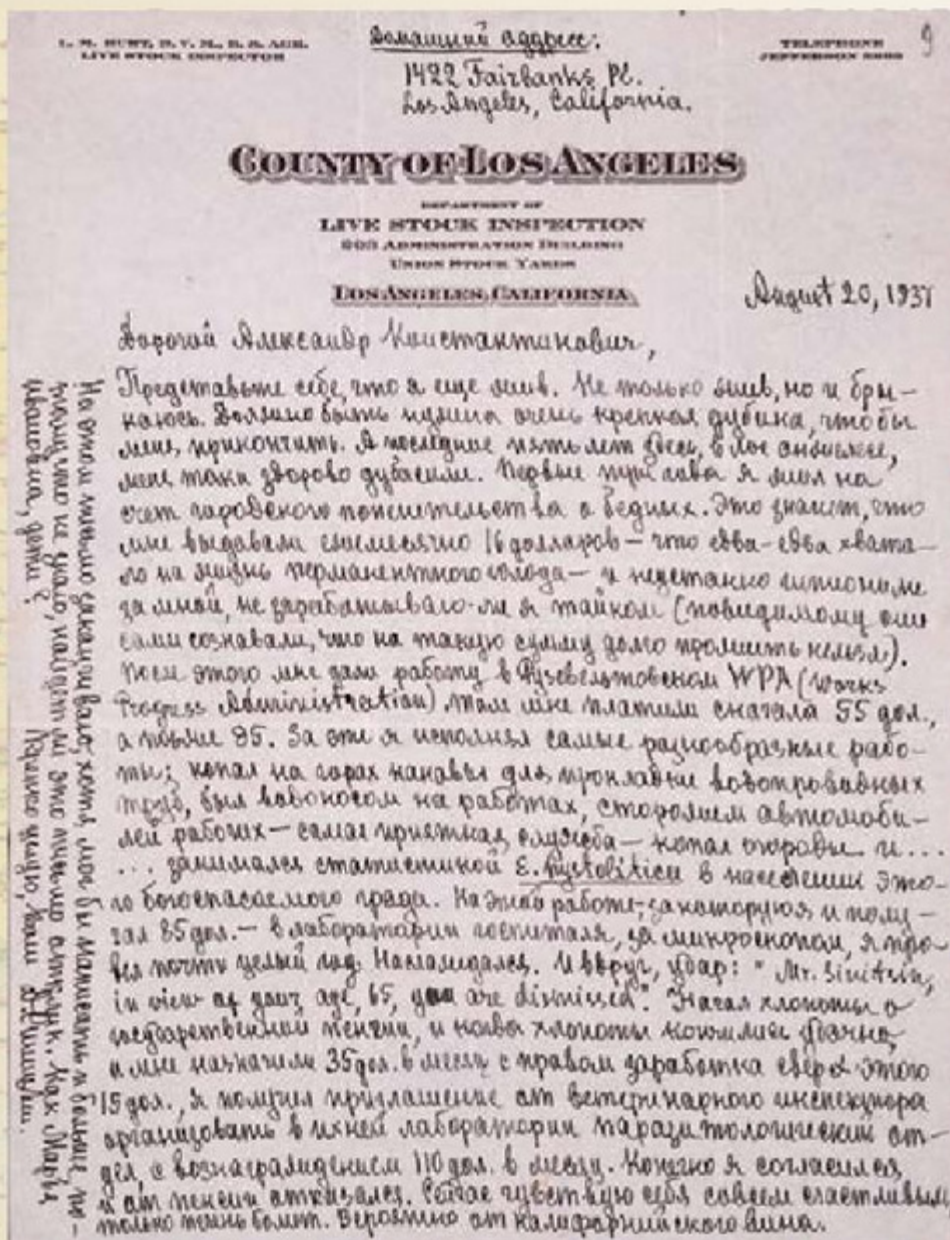 L. M. HURT, D. V. M., B. S. AGR.
LIVE STOCK INSPECTOR
Домашний аддресс:
1422 Fairbanks Pl.
Los Angeles, California.
TELEPHONE
JEFFERSON
9
COUNTY OF LOS ANGELES
DEPARTMENT OF
LIVE STOCK INSPECTION
ADMINISTRATION BUILDING
UNION STOCK YARDS
LOS ANGELES, CALIFORNIA
August 20, 1937
Дорогой Александр Константинович,
Представьте себе, что я еще жив. Не только жив, но и бры-
каюсь. Должно быть нужна очень крепкая дубина, чтобы
меня прикончить. А последние пять лет здесь, в Лос Анжелесе,
меня таки здорово дубасили. Первые три года я жил на
счет городского попечительства о бедных. Это значит, что
мне выдавали ежемесячно 16 долларов — что едва-едва хвата-
ло на жизнь перманентного голода — и неустанно шпионили
за мной, не зарабатываю-ли я тайком (повидимому они
сами сознавали, что на такую сумму долго прожить нельзя).
После этого мне дали работу в Рузвельтовском WPA (Works
Progress Administration). Там мне платили сначала 55 дол.,
а позже 85. За эти я исполнял самые разнообразные рабо-
ты; копал на горах канавы для прокладки водопроводных
труб, был водоносом на работах, сторожем автомоби-
лей рабочих — самая приятная служба — копал огороды и...
... занимался статистикой E. hystolitica в населении это-
го богоспасаемого града. На этой работе, за которую я и полу-
чал 85 дол. — в лаборатории госпиталя, за микроскопом, я про-
вел почти целый год. Наслаждался. И вдруг, удар: "Mr. Sinitsin,
in view of your age, 65, you are dismissed". Начал хлопоты о
государственной пенсии, и когда хлопоты кончились удачно,
и мне назначили 35 дол. в месяц с правом заработка сверх этого
15 дол., я получил приглашение от ветеринарного инспектора
организовать в ихней лаборатории паразитологический от-
дел, с вознаграждением 110 дол. в месяц. Конечно я согласился
и от пенсии отказался. Сейчас чувствую себя совсем счастливым,
только печень болит. Вероятно от калифорнийского вина.
На этом письмо заканчиваю, хотя мог бы написать и больше, по-
тому что не знаю, найдет ли это письмо адресата. Как Марья
Ивановна, дети? Крепко целую, Ваш Д. Синицин.